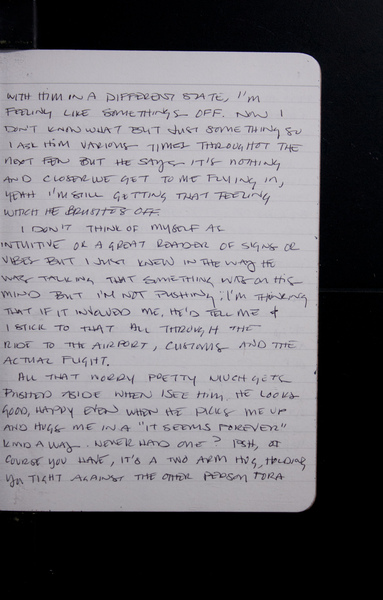 WITH HIM IN A DIFFERENT STATE, I'M
FEELING LIKE SOMETHINGS OFF. NOW I
DON'T KNOW WHAT BUT JUST SOMETHING SO
I ASK HIM VARIOUS TIMES THROUGHOT THE
NEXT FEW BUT HE SAYS IT'S NOTHING
AND CLOSER WE GET TO ME FLYING IN,
YEAH I'M STILL GETTING THAT FEELING
WITCH HE BRUSHES OFF.
I DON'T THINK OF MYSELF AS
INTUITIVE OR A GREAT READER OF SIGNS OR
VIBES BUT I JUST KNEW IN THE WAY HE
WAS TALKING THAT SOMETHING WAS ON HIS
MIND BUT I'M NOT PUSHING; I'M THINKING
THAT IF IT INVOLVED ME, HE'D TELL ME &
I STICK TO THAT ALL THROUGH THE
RIDE TO THE AIRPORT, CUSTOMS AND THE
ACTUAL FLIGHT.
ALL THAT WORRY PRETTY MUCH GETS
PUSHED ASIDE WHEN I SEE HIM, HE LOOKS
GOOD, HAPPY EVEN WHEN HE PICKS ME UP
AND HUGS ME IN A "IT SEEMS FOREVER"
KIND A WAY. NEVER HAD ONE? PSH, OF
COURSE YOU HAVE, IT'S A TWO ARM HUG, HOLDING
YOU TIGHT AGAINST THE OTHER PERSON FOR A